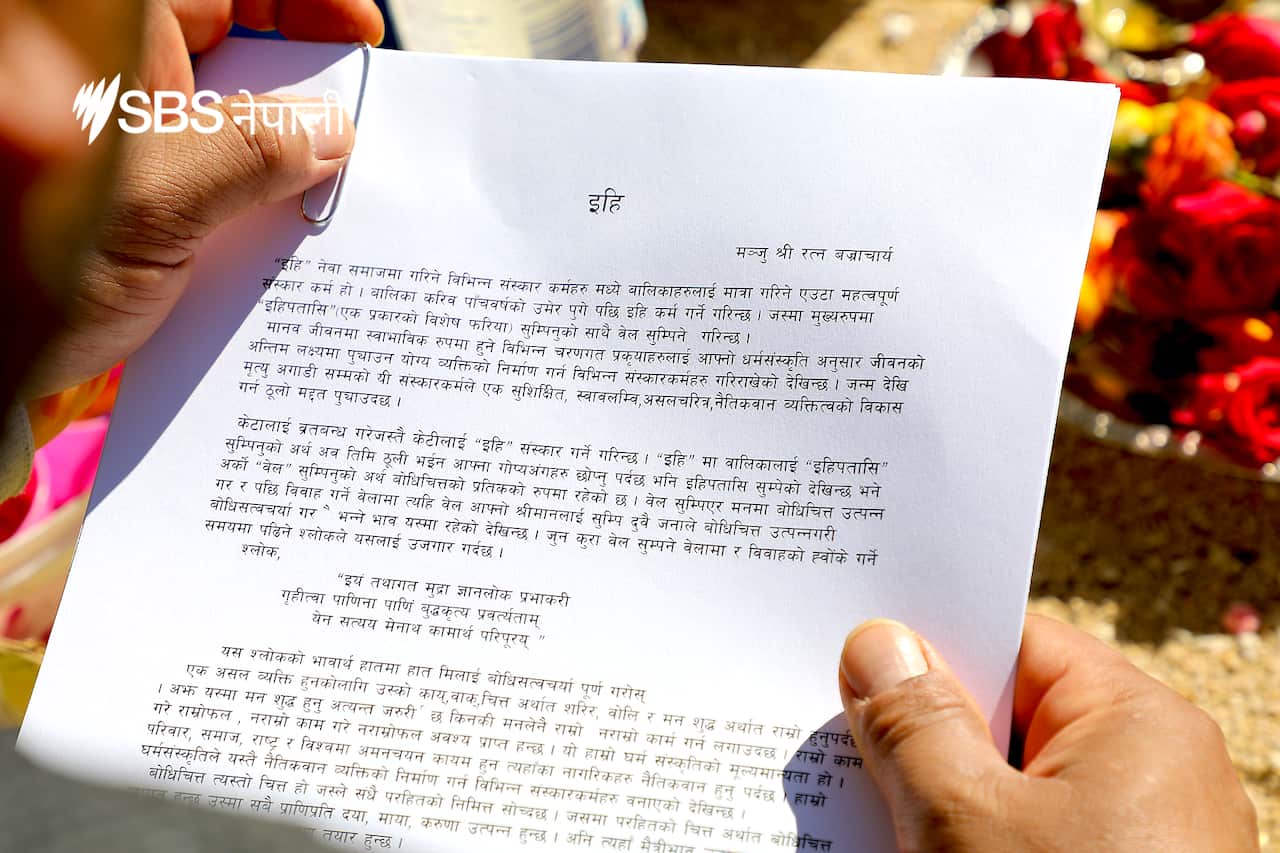 SBS नेपाली
इहि
मञ्जु श्री रत्न बज्राचार्य
“इहि” नेवा समाजमा गरिने विभिन्न संस्कार कर्महरु मध्ये बालिकाहरुलाई मात्रा गरिने एउटा महत्वपूर्ण
संस्कार कर्म हो । बालिका करिव पाँचवर्षको उमेर पुगे पछि इहि कर्म गर्ने गरिन्छ । जस्मा मुख्यरुपमा
“इहिपतासि”(एक प्रकारको विशेष फरिया) सुम्पिनुको साथै वेल सुम्पिने गरिन्छ ।
मानव जीवनमा स्वाभाविक रुपमा हुने विभिन्न चरणगत प्रकृयाहरुलाई आफ्नो धर्मसंस्कृति अनुसार जीवनको
अन्तिम लक्ष्यमा पुग्र्याउन योग्य व्यक्तिको निर्माण गर्न विभिन्न संस्कारकर्महरु गरिराखेको देखिन्छ । जन्म देखि
मृत्यु अगाडी सम्मको यी संस्कारकर्मले एक सुशिक्षित, स्वावलम्वि,असलचरित्र,नैतिकवान व्यक्तित्वको विकास
गर्न ठूलो मद्दत पुग्र्याउदछ ।
केटालाई ब्रतबन्ध गरेजस्तै केटीलाई “इहि” संस्कार गर्ने गरिन्छ । “इहि” मा वालिकालाई “इहिपतासि”
सुम्पिनुको अर्थ अव तिमि ठूली भईन आफ्ना गोप्यअंगहरु छोप्नु पर्दछ भनि इहिपतासि सुम्पेको देखिन्छ भने
अर्को “वेल” सुम्पिनुको अर्थ बोधिचित्तको प्रतिकको रुपमा रहेको छ । वेल सुम्पिएर मनमा बोधिचित्त उत्पन्न
गर र पछि विवाह गर्ने वेलामा त्यहि वेल आफ्नो श्रीमानलाई सुम्पि दुवै जनाले बोधिचित्त उत्पन्नगरी
बोधिसत्वचर्या गर ˆ भन्ने भाव यस्मा रहेको देखिन्छ । जुन कुरा वेल सुम्पने वेलामा र विवाहको ह्वोंके गर्ने
समयमा पढिने श्लोकले यसलाई उजगार गर्दछ ।
श्लोक,
“इयं तथागत मुद्रा ज्ञानलोक प्रभाकरी
गृहीत्वा पाणिना पाणिं बुद्धकृत्य प्रवर्त्यताम्
येन सत्यय मेनाथ कामार्थ परिपूरय् ”
यस श्लोकको भावार्थ हातमा हात मिलाई बोधिसत्वचर्या पूर्ण गरोस्
एक असल व्यक्ति हुनकोलागि उसको काय,वाक्,चित्त अर्थात शरिर, वोलि र मन शुद्ध अर्थात राम्रो हुनुपर्दछ
। अझ यस्मा मन शुद्ध हुनु अत्यन्त जरुरी छ किनकी मनलेनै राम्रो नराम्रो कार्म गर्न लगाउदछ । राम्रो काम
गरे राम्रोफल , नराम्रो काम गरे नराम्रोफल अवश्य प्राप्त हुन्छ । यो हाम्रो घर्म संस्कृतिको मूल्यमान्यता हो ।
परिवार, समाज, राष्ट्र र विश्वमा अमनचयन कायम हुन त्यहाँका नागरिकहरु नैतिकवान हुनु पर्दछ । हाम्रो
धर्मसंस्कृतिले यस्तै नैतिकवान व्यक्तिको निर्माण गर्न विभिन्न संस्कारकर्महरु वनाएको देखिन्छ ।
बोधिचित्त त्यस्तो चित्त हो जस्ले सधै परहितको निमित्त सोच्दछ । जसमा परहितको चित्त अर्थात बोधिचित्त
हुन्छ उस्मा सवै प्राणिप्रति दया, माया, करुणा उत्पन्न हुन्छ । अनि त्यहाँ
तयार हुन्छ ।